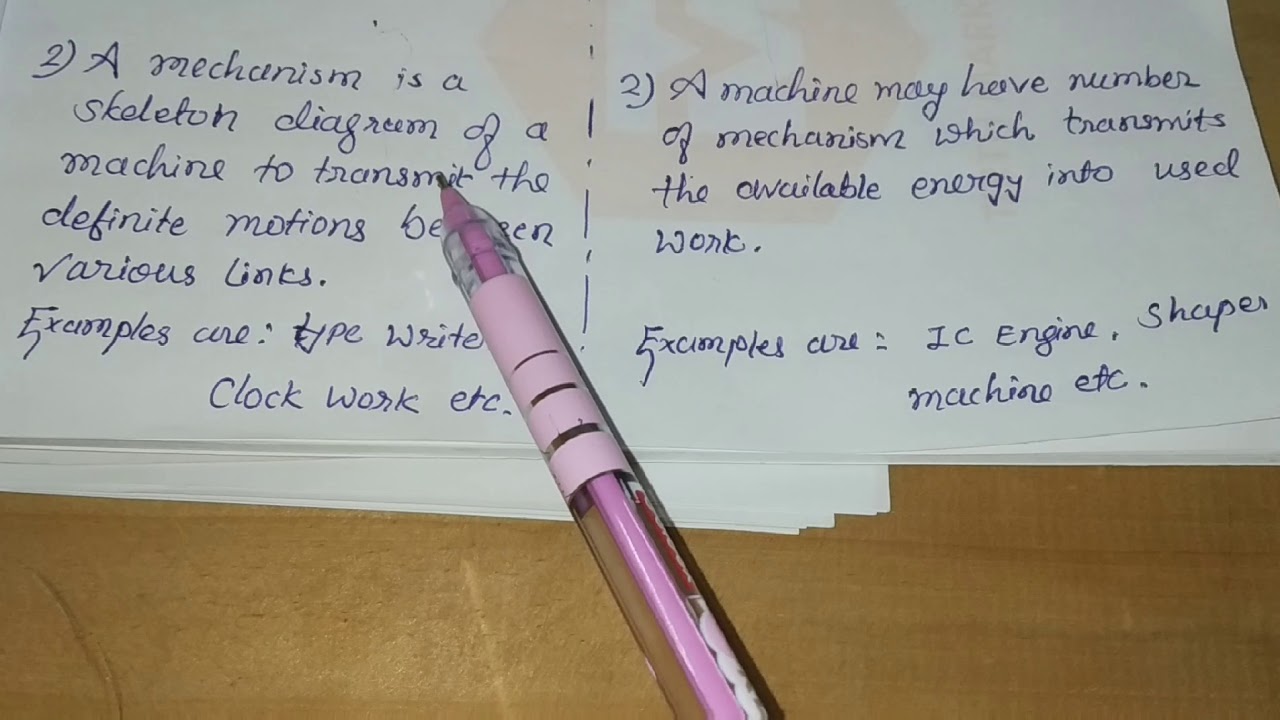 2) A mechanism is a
skeleton diagram of a
machine to transmit the
definite motions between
various links.
Examples are: type write
Clock work etc.
2) A machine may have number
of mechanism which transmits
the available energy into used
work.
Examples are: IC Engine, Shaper
machine etc.